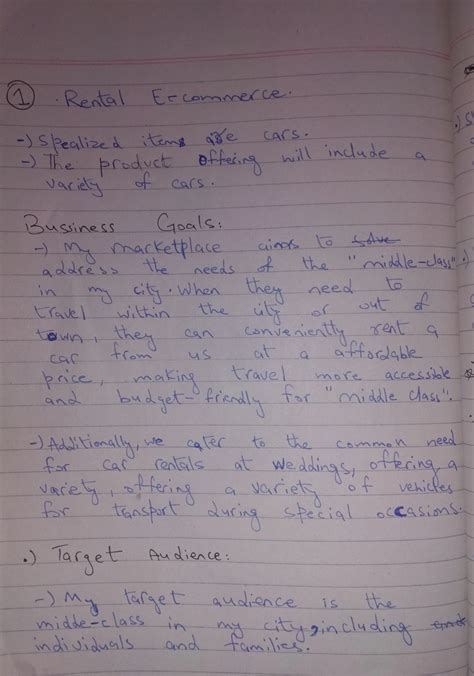 ① . Rental E-commerce.
-) Spealized items are cars.
-) The product offering will include a
variety of cars.
Bussiness Goals:
-) My marketplace aims to solve
address the needs of the "middle-class"
in my city. When they need to
travel within the city or out of
town, they can conveniently rent a
car from us at a affordable
price, making travel more accessible
and budget-friendly for "middle class".
-) Additionally, we cater to the common need
for car rentals at weddings, offering a
variety, offering a variety of vehicles
for transport during special occasions.
.) Target Audience:
-) My target audience is the
midde-class in my city, including
individuals and families.